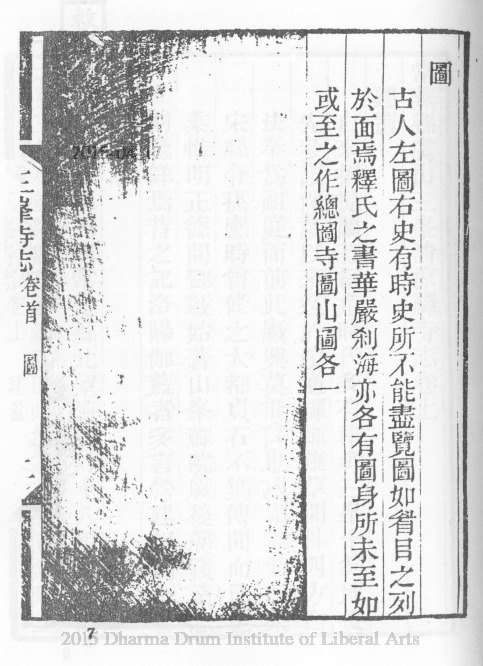 圖
古人左圖右史有時史所不能盡覽圖如眉目之列
於面焉釋氏之書華嚴刹海亦各有圖身所未至如
或至之作總圖寺圖山圖各一
三峯寺志 卷首 圖 二
7
2015 Dharma Drum Institute of Liberal Arts